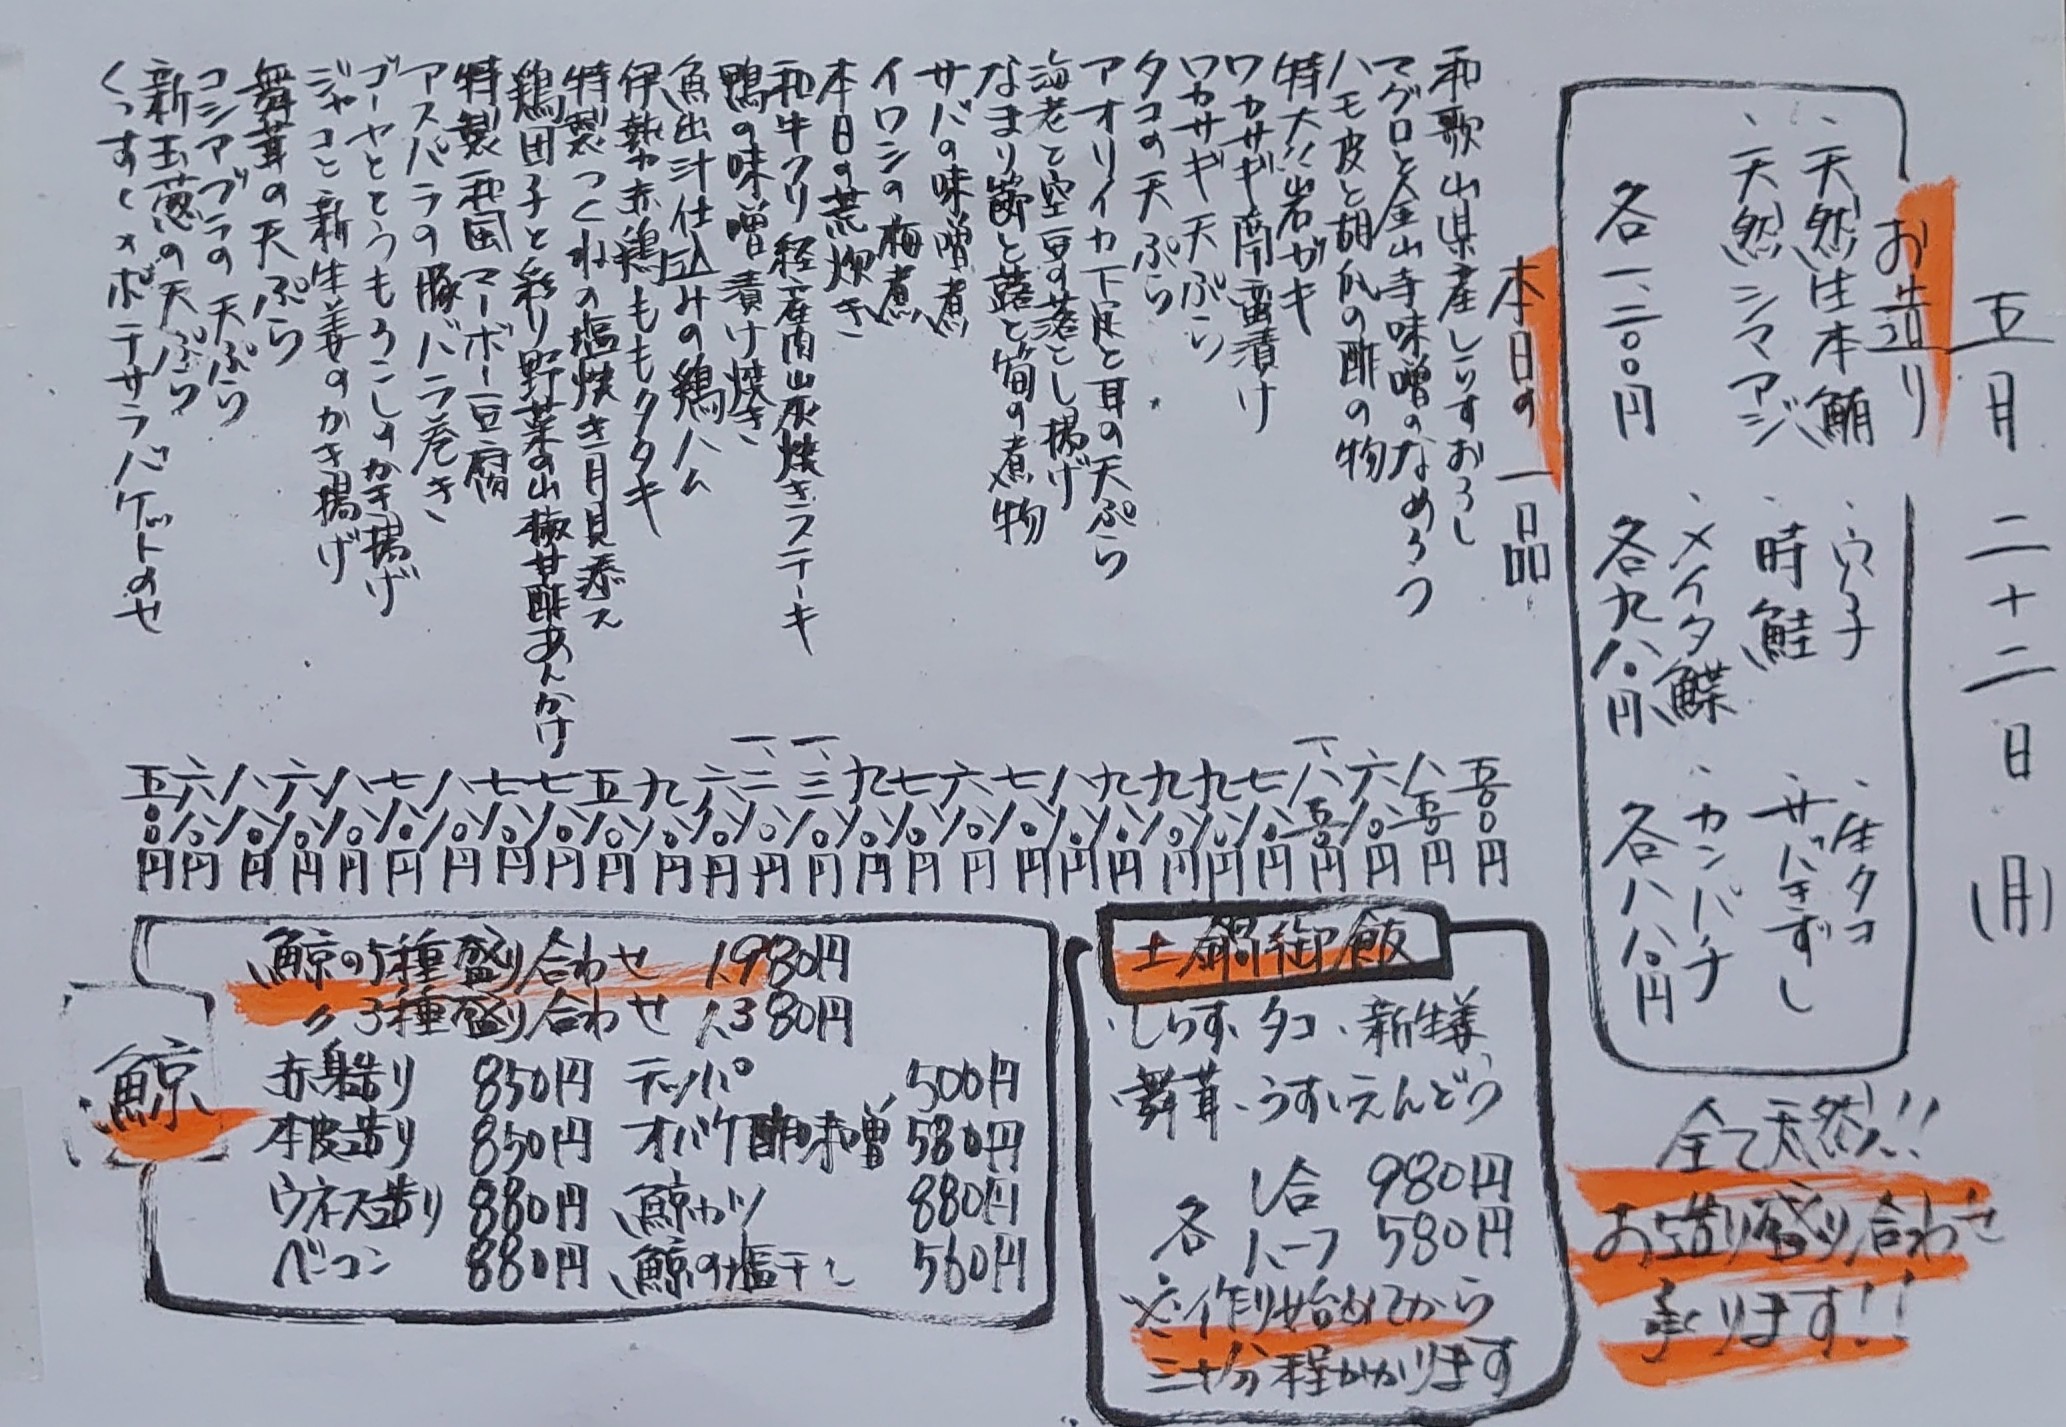 五月二十二日(月)
お造り
・天然生本鮪
・天然シマアジ
各一、二〇〇円
・穴子
・時鮭
・メイタ鰈
各九八〇円
・生タコ
・サバきずし
・カンパチ
各八八〇円
全て天然!!
お造り盛り合わせ
承ります!!
本日の一品
和歌山県産しらすおろし 五〇〇円
マグロと金山寺味噌のなめろう 八五〇円
ハモ皮と胡瓜の酢の物 六八〇円
特大!!岩ガキ 一、八五〇円
ワカサギ南蛮漬け 七八〇円
ワカサギ天ぷら 九八〇円
タコの天ぷら 九八〇円
アオリイカ下足と耳の天ぷら 九八〇円
海老と空豆の落とし揚げ 八八〇円
なまり節と蕗と筍の煮物 七八〇円
サバの味噌煮 六八〇円
イワシの梅煮 七八〇円
本日の荒炊き 九八〇円
和牛クリ経産肉炭焼きステーキ 一、三八〇円
鴨の味噌漬け焼き 一、二八〇円
魚出汁仕込みの鶏ハム 六八〇円
伊勢赤鶏ももタタキ 九八〇円
特製つくねの塩焼き月見添え 五八〇円
鶏団子と彩り野菜の山椒甘酢あんかけ 七八〇円
特製和風マーボー豆腐 七八〇円
アスパラの豚バラ巻き 八八〇円
ゴーヤととうもろこしのかき揚げ 七八〇円
ジャコと新生姜のかき揚げ 八八〇円
舞茸の天ぷら 六八〇円
コシアブラの天ぷら 八八〇円
新玉葱の天ぷら 六八〇円
ポテサラバケットのせ 五〇〇円
土鍋御飯
・しらす・タコ・新生姜
・舞茸・うすいえんどう
各 1合 980円
ハーフ 580円
※作り始めてから
三十分程かかります
鯨
鯨の5種盛り合わせ 1,980円
〃3種盛り合わせ 1,380円
赤身造り 850円 テッパ 500円
本皮造り 850円 オバケ酢味噌 580円
ウネス造り 880円 鯨カツ 880円
ベーコン 880円 鯨の塩干し 560円